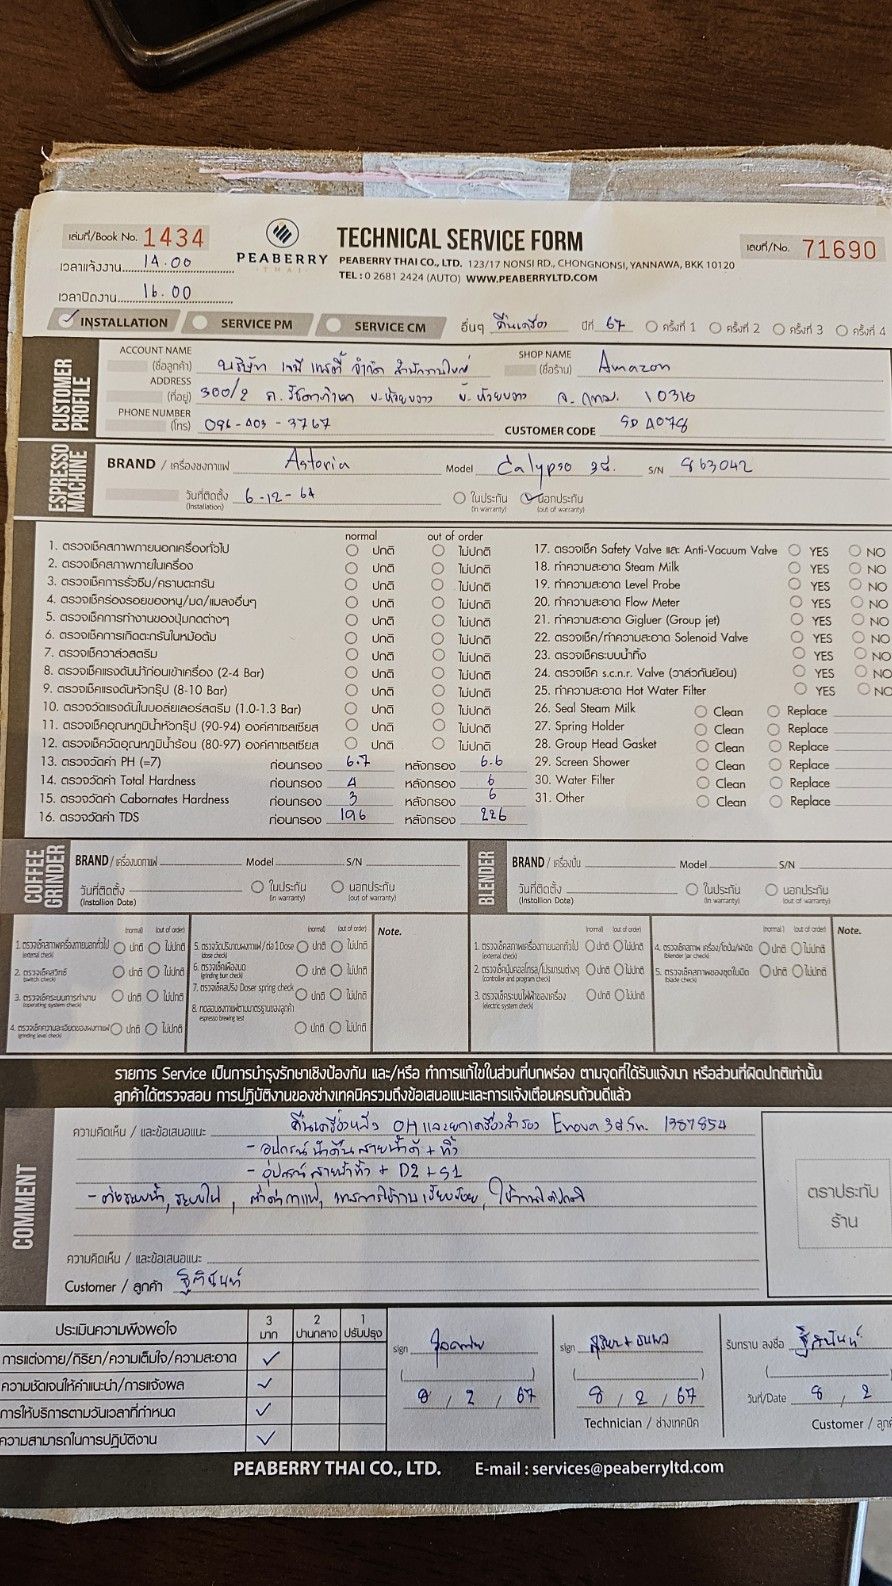 เล่มที่/Book No. 1434
PEABERRY
THAI
TECHNICAL SERVICE FORM
เลขที่/No. 71690
เวลาแจ้งงาน 14.00
PEABERRY THAI CO., LTD. 123/17 NONSI RD., CHONGNONSI, YANNAWA, BKK 10120
เวลาปิดงาน 16.00
TEL : 0 2681 2424 (AUTO) WWW.PEABERRYLTD.COM
INSTALLATION SERVICE PM SERVICE CM อื่นๆ คืนเครื่อง ปีที่ 67 ครั้งที่ 1 ครั้งที่ 2 ครั้งที่ 3 ครั้งที่ 4
CUSTOMER PROFILE
ACCOUNT NAME (ชื่อลูกค้า) บริษัท เจมี่ จำกัด สำนักงานใหญ่ SHOP NAME (ชื่อร้าน) Amazon
ADDRESS (ที่อยู่) 300/2 ถ. รัชดาภิเษก ข. ห้วยขวาง ข. ห้วยขวาง จ. กทม. 10310
PHONE NUMBER (โทร) 096-403-3767 CUSTOMER CODE SD A078
ESPRESSO MACHINE
BRAND / เครื่องชงกาแฟ Astoria Model Calypso 3G. S/N 863042
วันที่ติดตั้ง (Installation) 6-12-64 ในประกัน (in warranty) นอกประกัน (out of warranty)
normal out of order
1. ตรวจเช็คสภาพภายนอกเครื่องทั่วไป ปกติ ไม่ปกติ
2. ตรวจเช็คสภาพภายในเครื่อง ปกติ ไม่ปกติ
3. ตรวจเช็คการรั่วซึม/คราบตะกรัน ปกติ ไม่ปกติ
4. ตรวจเช็คร่องรอยของหนู/มด/แมลงอื่นๆ ปกติ ไม่ปกติ
5. ตรวจเช็คการทำงานของปุ่มกดต่างๆ ปกติ ไม่ปกติ
6. ตรวจเช็คการเกิดตะกรันในหม้อต้ม ปกติ ไม่ปกติ
7. ตรวจเช็ควาล์วสตรีม ปกติ ไม่ปกติ
8. ตรวจเช็คแรงดันน้ำก่อนเข้าเครื่อง (2-4 Bar) ปกติ ไม่ปกติ
9. ตรวจเช็คแรงดันหัวกรุ๊ป (8-10 Bar) ปกติ ไม่ปกติ
10. ตรวจวัดแรงดันในบอล์ยเลอร์สตรีม (1.0-1.3 Bar) ปกติ ไม่ปกติ
11. ตรวจเช็คอุณหภูมิน้ำหัวกรุ๊ป (90-94) องศาเซลเซียส ปกติ ไม่ปกติ
12. ตรวจเช็ควัดอุณหภูมิน้ำร้อน (80-97) องศาเซลเซียส ปกติ ไม่ปกติ
13. ตรวจวัดค่า PH (=7) ก่อนกรอง 6.7 หลังกรอง 6.6
14. ตรวจวัดค่า Total Hardness ก่อนกรอง 4 หลังกรอง 6
15. ตรวจวัดค่า Cabornates Hardness ก่อนกรอง 3 หลังกรอง 6
16. ตรวจวัดค่า TDS ก่อนกรอง 196 หลังกรอง 226
17. ตรวจเช็ค Safety Valve และ Anti-Vacuum Valve YES NO
18. ทำความสะอาด Steam Milk YES NO
19. ทำความสะอาด Level Probe YES NO
20. ทำความสะอาด Flow Meter YES NO
21. ทำความสะอาด Gigluer (Group jet) YES NO
22. ตรวจเช็ค/ทำความสะอาด Solenoid Valve YES NO
23. ตรวจเช็คระบบน้ำทิ้ง YES NO
24. ตรวจเช็ค s.c.n.r. Valve (วาล์วกันย้อน) YES NO
25. ทำความสะอาด Hot Water Filter YES NO
26. Seal Steam Milk Clean Replace
27. Spring Holder Clean Replace
28. Group Head Gasket Clean Replace
29. Screen Shower Clean Replace
30. Water Filter Clean Replace
31. Other Clean Replace
COFFEE GRINDER
BRAND / เครื่องบดกาแฟ Model S/N
วันที่ติดตั้ง (Installion Date) ในประกัน (in warranty) นอกประกัน (out of warranty)
BLENDER
BRAND / เครื่องปั่น Model S/N
วันที่ติดตั้ง (Installion Date) ในประกัน (in warranty) นอกประกัน (out of warranty)
(normal) (out of order)
1. ตรวจเช็คสภาพเครื่องภายนอกทั่วไป (external check) ปกติ ไม่ปกติ
2. ตรวจเช็คสวิทช์ (switch check) ปกติ ไม่ปกติ
3. ตรวจเช็คระบบการทำงาน (operating system check) ปกติ ไม่ปกติ
4. ตรวจเช็คความละเอียดของผงกาแฟ (grinding level check) ปกติ ไม่ปกติ
(normal) (out of order)
5. ตรวจวัดปริมาณผงกาแฟ/ต่อ 1 Dose (dose check) ปกติ ไม่ปกติ
6. ตรวจเช็คเฟืองบด (grinding burr check) ปกติ ไม่ปกติ
7. ตรวจเช็คสปริง Doser spring check ปกติ ไม่ปกติ
8. ทดสอบชงกาแฟตามมาตรฐานของลูกค้า espresso brewing test ปกติ ไม่ปกติ
Note.
(normal) (out of order)
1. ตรวจเช็คสภาพเครื่องภายนอกทั่วไป (external check) ปกติ ไม่ปกติ
2. ตรวจเช็คปุ่มคอลโทรล/โปรแกรมต่างๆ (controller and program check) ปกติ ไม่ปกติ
3. ตรวจเช็คระบบไฟฟ้าของเครื่อง (electric system check) ปกติ ไม่ปกติ
(normal) (out of order)
4. ตรวจเช็คสภาพ เครื่อง/โถปั่น/ฝาปิด (blender jar check) ปกติ ไม่ปกติ
5. ตรวจเช็คสภาพของชุดใบมีด (blade check) ปกติ ไม่ปกติ
Note.
รายการ Service เป็นการบำรุงรักษาเชิงป้องกัน และ/หรือ ทำการแก้ไขในส่วนที่บกพร่อง ตามจุดที่ได้รับแจ้งมา หรือส่วนที่ผิดปกติเท่านั้น
ลูกค้าได้ตรวจสอบ การปฏิบัติงานของช่างเทคนิครวมถึงข้อเสนอแนะและการแจ้งเตือนครบถ้วนดีแล้ว
COMMENT
ความคิดเห็น / และข้อเสนอแนะ คืนเครื่องหลัง OH และยกเครื่องสำรอง Enova 3G Sn. 1387854
- อุปกรณ์ น้ำดื่ม สายน้ำดี + ทิ้ง
- อุปกรณ์ สายน้ำทิ้ง + D2 + S1
- ต่อระบบน้ำ, ระบบไฟ, ตั้งค่ากาแฟ, การใช้งาน เรียบร้อย, ใช้งานได้ปกติ
ความคิดเห็น / และข้อเสนอแนะ
Customer / ลูกค้า ฐิตินันท์
ตราประทับ
ร้าน
ประเมินความพึงพอใจ 3 มาก 2 ปานกลาง 1 ปรับปรุง
การแต่งกาย/กิริยา/ความเต็มใจ/ความสะอาด
ความชัดเจนให้คำแนะนำ/การแจ้งผล
การให้บริการตามวันเวลาที่กำหนด
ความสามารถในการปฏิบัติงาน
sign
8 / 2 / 67
sign
8 / 2 / 67
Technician / ช่างเทคนิค
รับทราบ ลงชื่อ ฐิตินันท์
วันที่/Date 8 / 2
Customer / ลูกค้
PEABERRY THAI CO., LTD. E-mail : services@peaberryltd.com